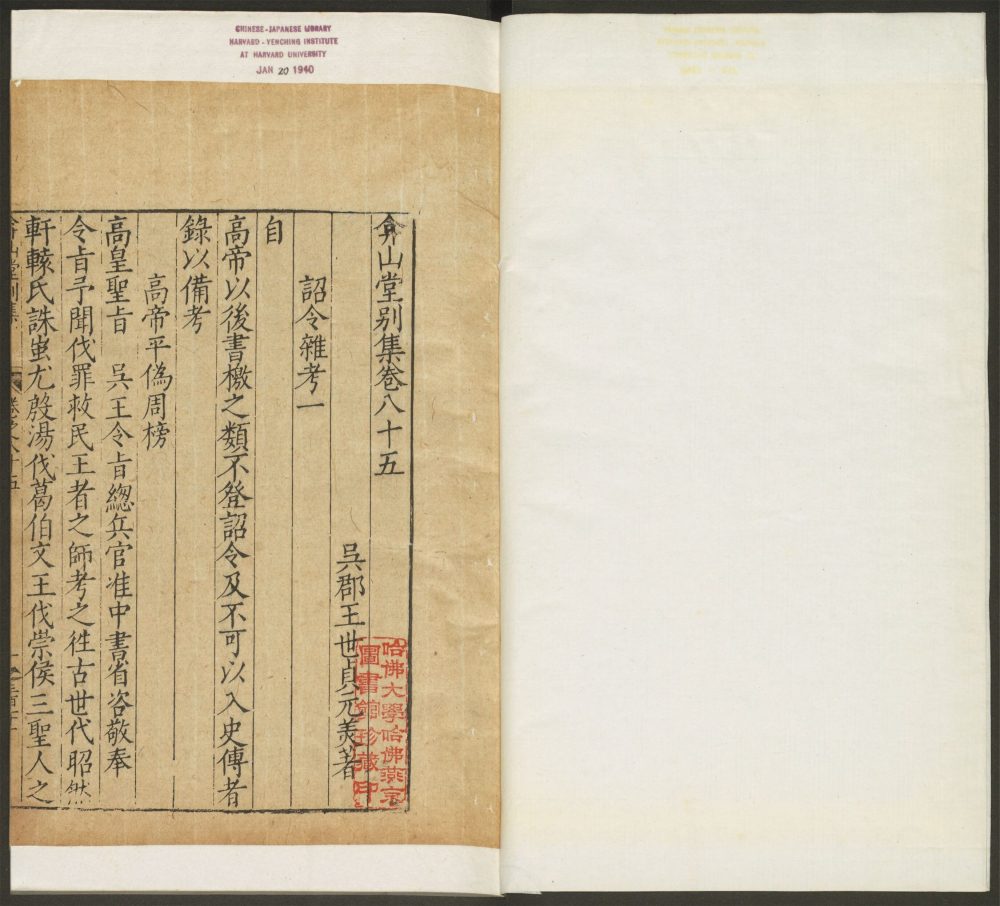 CHINESE-JAPANESE LIBRARY
HARVARD-YENCHING INSTITUTE
AT HARVARD UNIVERSITY
JAN 20 1940
弇山堂别集卷八十五
吳郡王世貞元美著
詔令雜考一
自
高帝以後書檄之類不登詔令及不可以入史傳者
錄以備考
高帝平偽周榜
高皇聖旨 吳王令旨總兵官准中書省咨敬奉
令旨予聞伐罪救民王者之師考之徃古世代昭然
軒轅氏誅蚩尤殷湯伐葛伯文王伐崇侯三聖人之
哈佛大學哈佛燕京
圖書館珍藏印